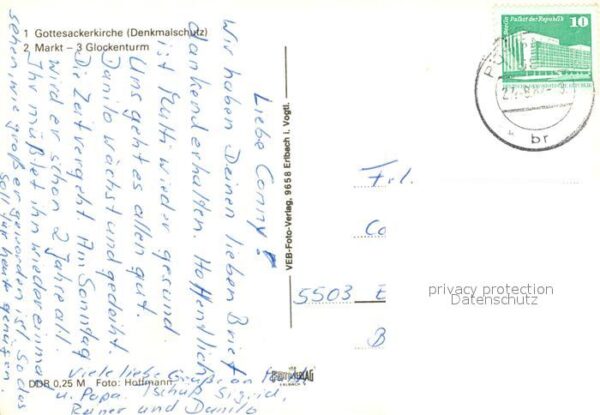 1 Gottesackerkirche (Denkmalschutz)
2 Markt – 3 Glockenturm
Liebe Conny!
Wir haben Deinen lieben Brief
dankend erhalten. Hoffendlich
ist Mutti wieder gesund.
Uns geht es allen gut.
Danilo wächst und gedeiht.
Die Zeit vergeht. Am Sonntag
wird er schon 2 Jahre alt.
Ihr müßtet ihn wieder einmal
sehen, wie groß er geworden ist. So das
soll für heut genügen.
Viele liebe Grüße an
u. Papa. Tschüß Sigrid,
Rainer und Danilo
DDR 0,25 M Foto: Hoffmann
VEB-Foto-Verlag, 9658 Erlbach i. Vogtl.
Berlin Palast der Republik
10
br
Frl.
Co
5503 E
B
privacy protection
Datenschutz